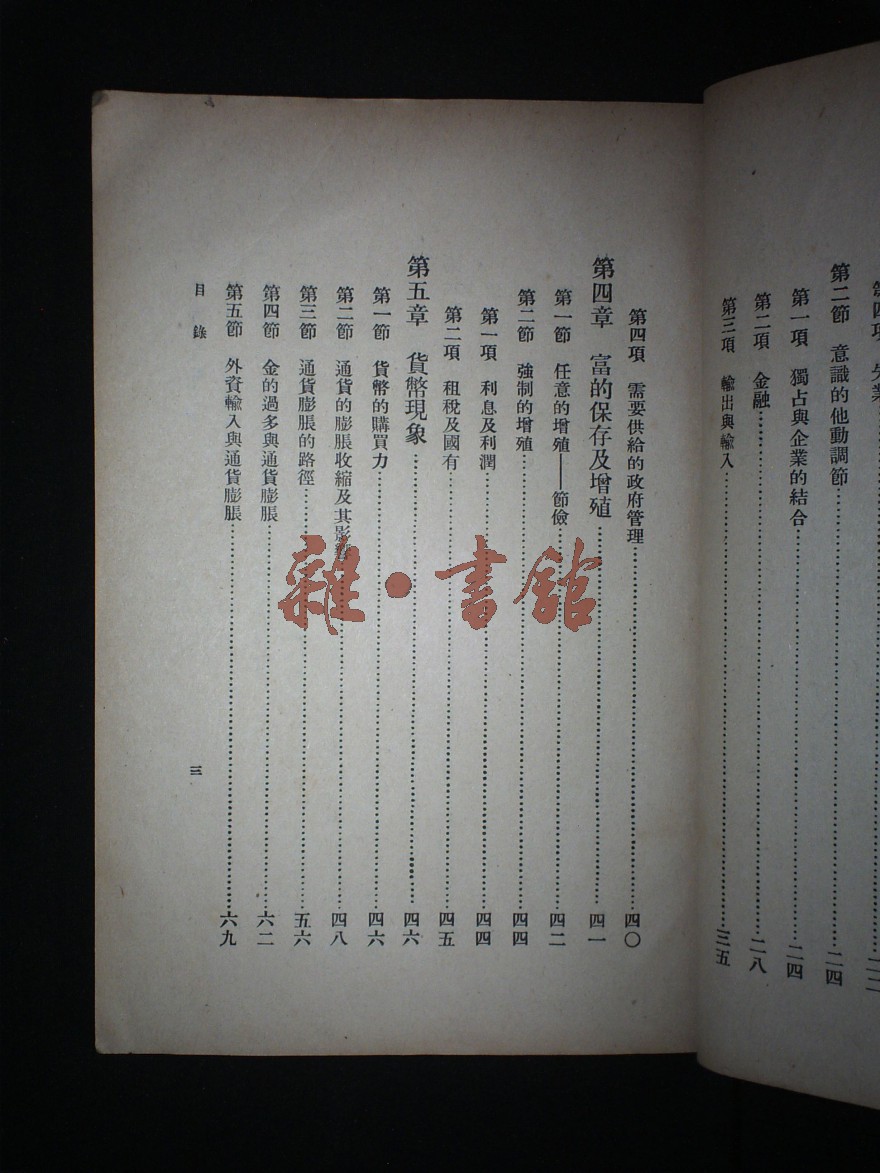 第二節 意識的他動調節……二四
第一項 獨占與企業的結合……二四
第二項 金融……二八
第三項 輸出與輸入……三五
第四項 需要供給的政府管理……四〇
第四章 富的保存及增殖……四一
第一節 任意的增殖——節儉……四二
第二節 強制的增殖……四四
第一項 利息及利潤……四四
第二項 租稅及國有……四五
第五章 貨幣現象……四六
第一節 貨幣的購買力……四六
第二節 通貨的膨脹收縮及其影響……四八
第三節 通貨膨脹的路徑……五六
第四節 金的過多與通貨膨脹……六二
第五節 外資輸入與通貨膨脹……六九
目錄 三
雜·書館